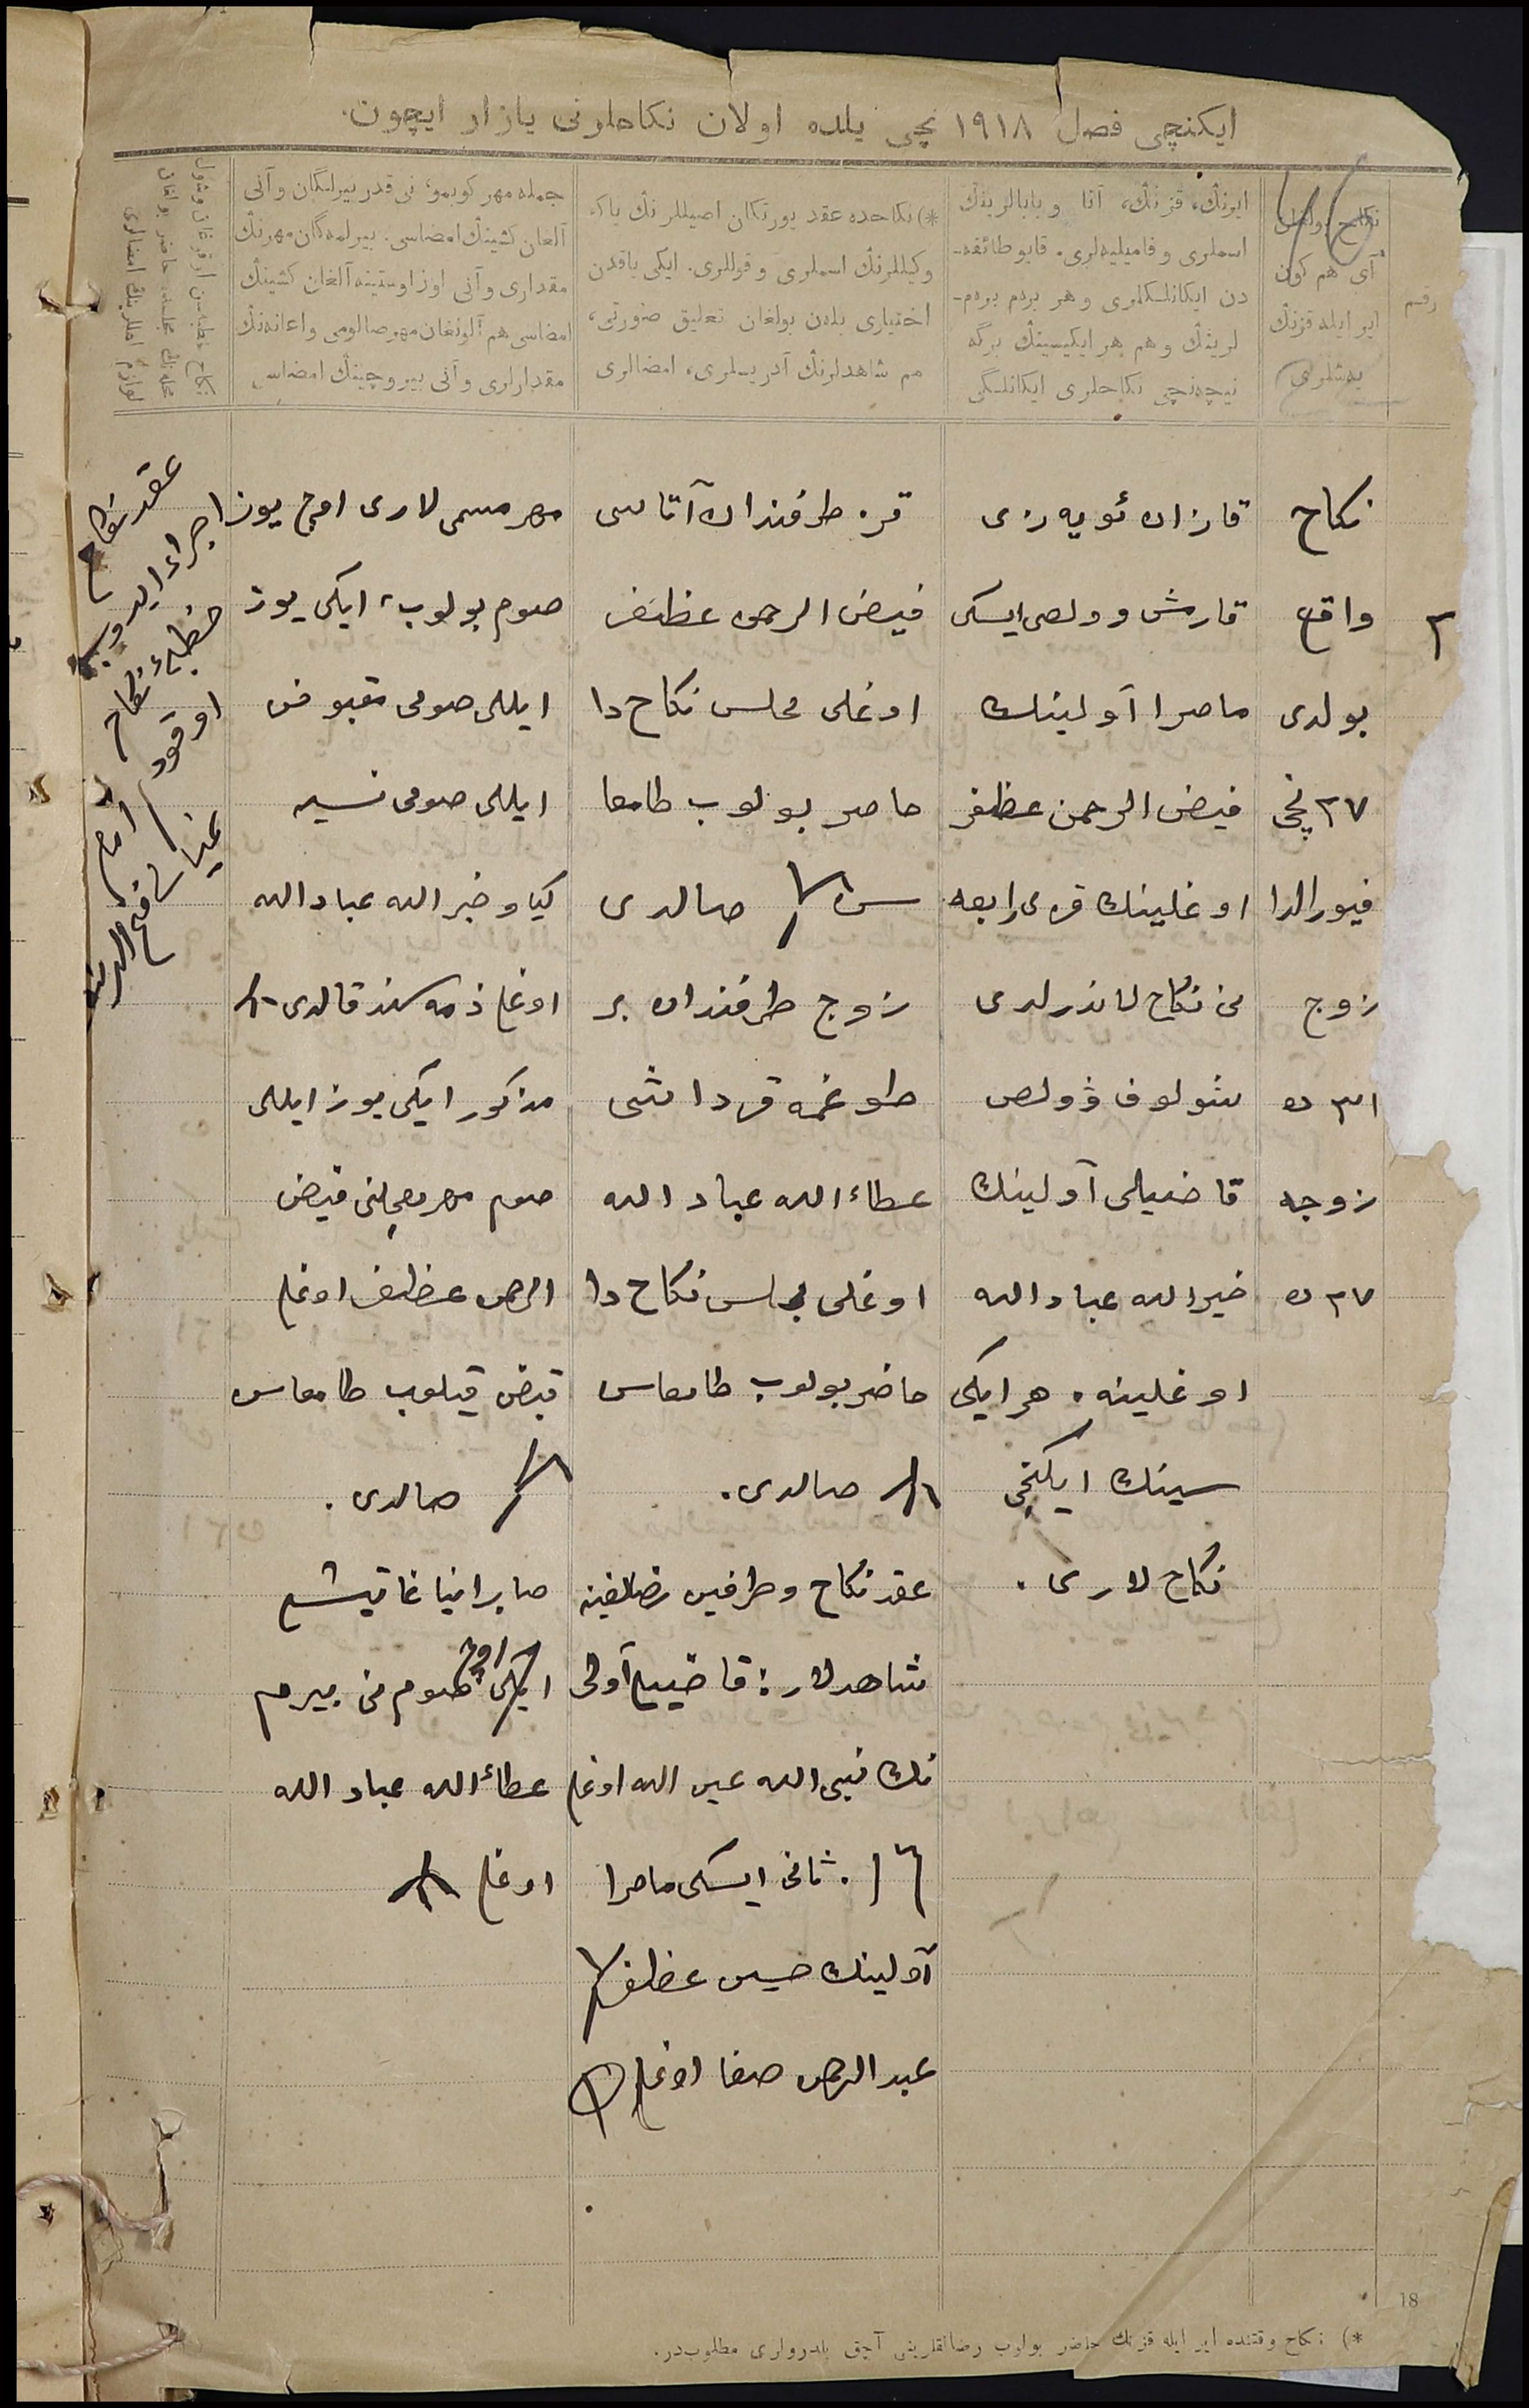 ایكنچی فصل ۱۹۱۸ نچی یلده اولان نكاحلرنی یازار ایچون.
رقم
نكاح بولغان
آی هم كون
ایر ایله قزنڭ
یه‌شلری
ایرنڭ، قزنڭ، آتا و بابالرینڭ
اسملری و فامیلیه‌لری. قایو طائفه-
دن ایكانلكلری و هر بردم بردم-
لرینڭ و هم هر ایكیسینڭ برگه
نیچه‌نچی نكاحلری ایكانلگی
*) نكاحده عقد یورتكان اصیللرنڭ یاكه
وكیللرنڭ اسملری و قوللری. ایكی یاقدن
اختیاری بلەن بولغان تعلیق صورتی،
هم شاهدلرنڭ آدریسلری، امضالری
جمله مهر كوبمو، نی قدر بیرلگان و آنی
آلغان كشینڭ امضاسی. بیرلمه‌گان مهرنڭ
مقداری و آنی اوز اوستینه آلغان كشینڭ
امضاسی هم آلونغان مهر صالومی و اعانه‌نڭ
مقدارلری و آنی بیروچینڭ امضاسی
۲
نكاح
واقع
بولدی
۲۷ نچی
فیورالدا
زوج
۳۱ ده
زوجه
۲۷ ده
قازان ئویه‌زی
قارش وولصی ایسكی
ماصرا آولینك
فیض الرحمن عظیف
اوغلینك قزی رابعه
نی نكاح لاندرلدی
شولوق وولص
قاضیلی آولینك
خیرالله عبادالله
اوغلینه. هر ایكی
سینك ایكنچی
نكاح لاری.
قز طرفندان آتاسی
فیض الرحمن عظیف
اوغلی مجلس نكاح دا
حاضر بولوب طامغا
سن صالدی
زوج طرفندان بر
طوغمه قرداشی
عطاءالله عبادالله
اوغلی مجلس نكاح دا
حاضر بولوب طامغاسن
صالدی.
عقد نكاح و طرفین رضالغینه
شاهدلار: قاضیلی آولی
نك نبی الله اوغلی
ثانی ایسكی ماصرا
آولینك حسین عظیف
عبدالرحمن صفا اوغلی
مهر مسمی لاری اوچ یوز
صوم بولوب، ایكی یوز
ایللی صومی مقبوض
ایللی صومی نسیه
كیاو خیرالله عبادالله
اوغلی ذمه سنده قالدی
مذكور ایكی یوز ایللی
صوم مهر معجلنی فیض
الرحمن عظیف اوغلی
قبض قیلوب طامغاسن
صالدی.
اوچ
صوم نی بیردم
عطاءالله عبادالله
اوغلی
عقد نكاح
اجراء ایدوب
خطبهٔ نكاح
اوقودم
امام
18
*) نكاح وقتنده ایر ایله قزنڭ حاضر بولوب رضالقلرینی آچق بلدرولری مطلوب‌در.